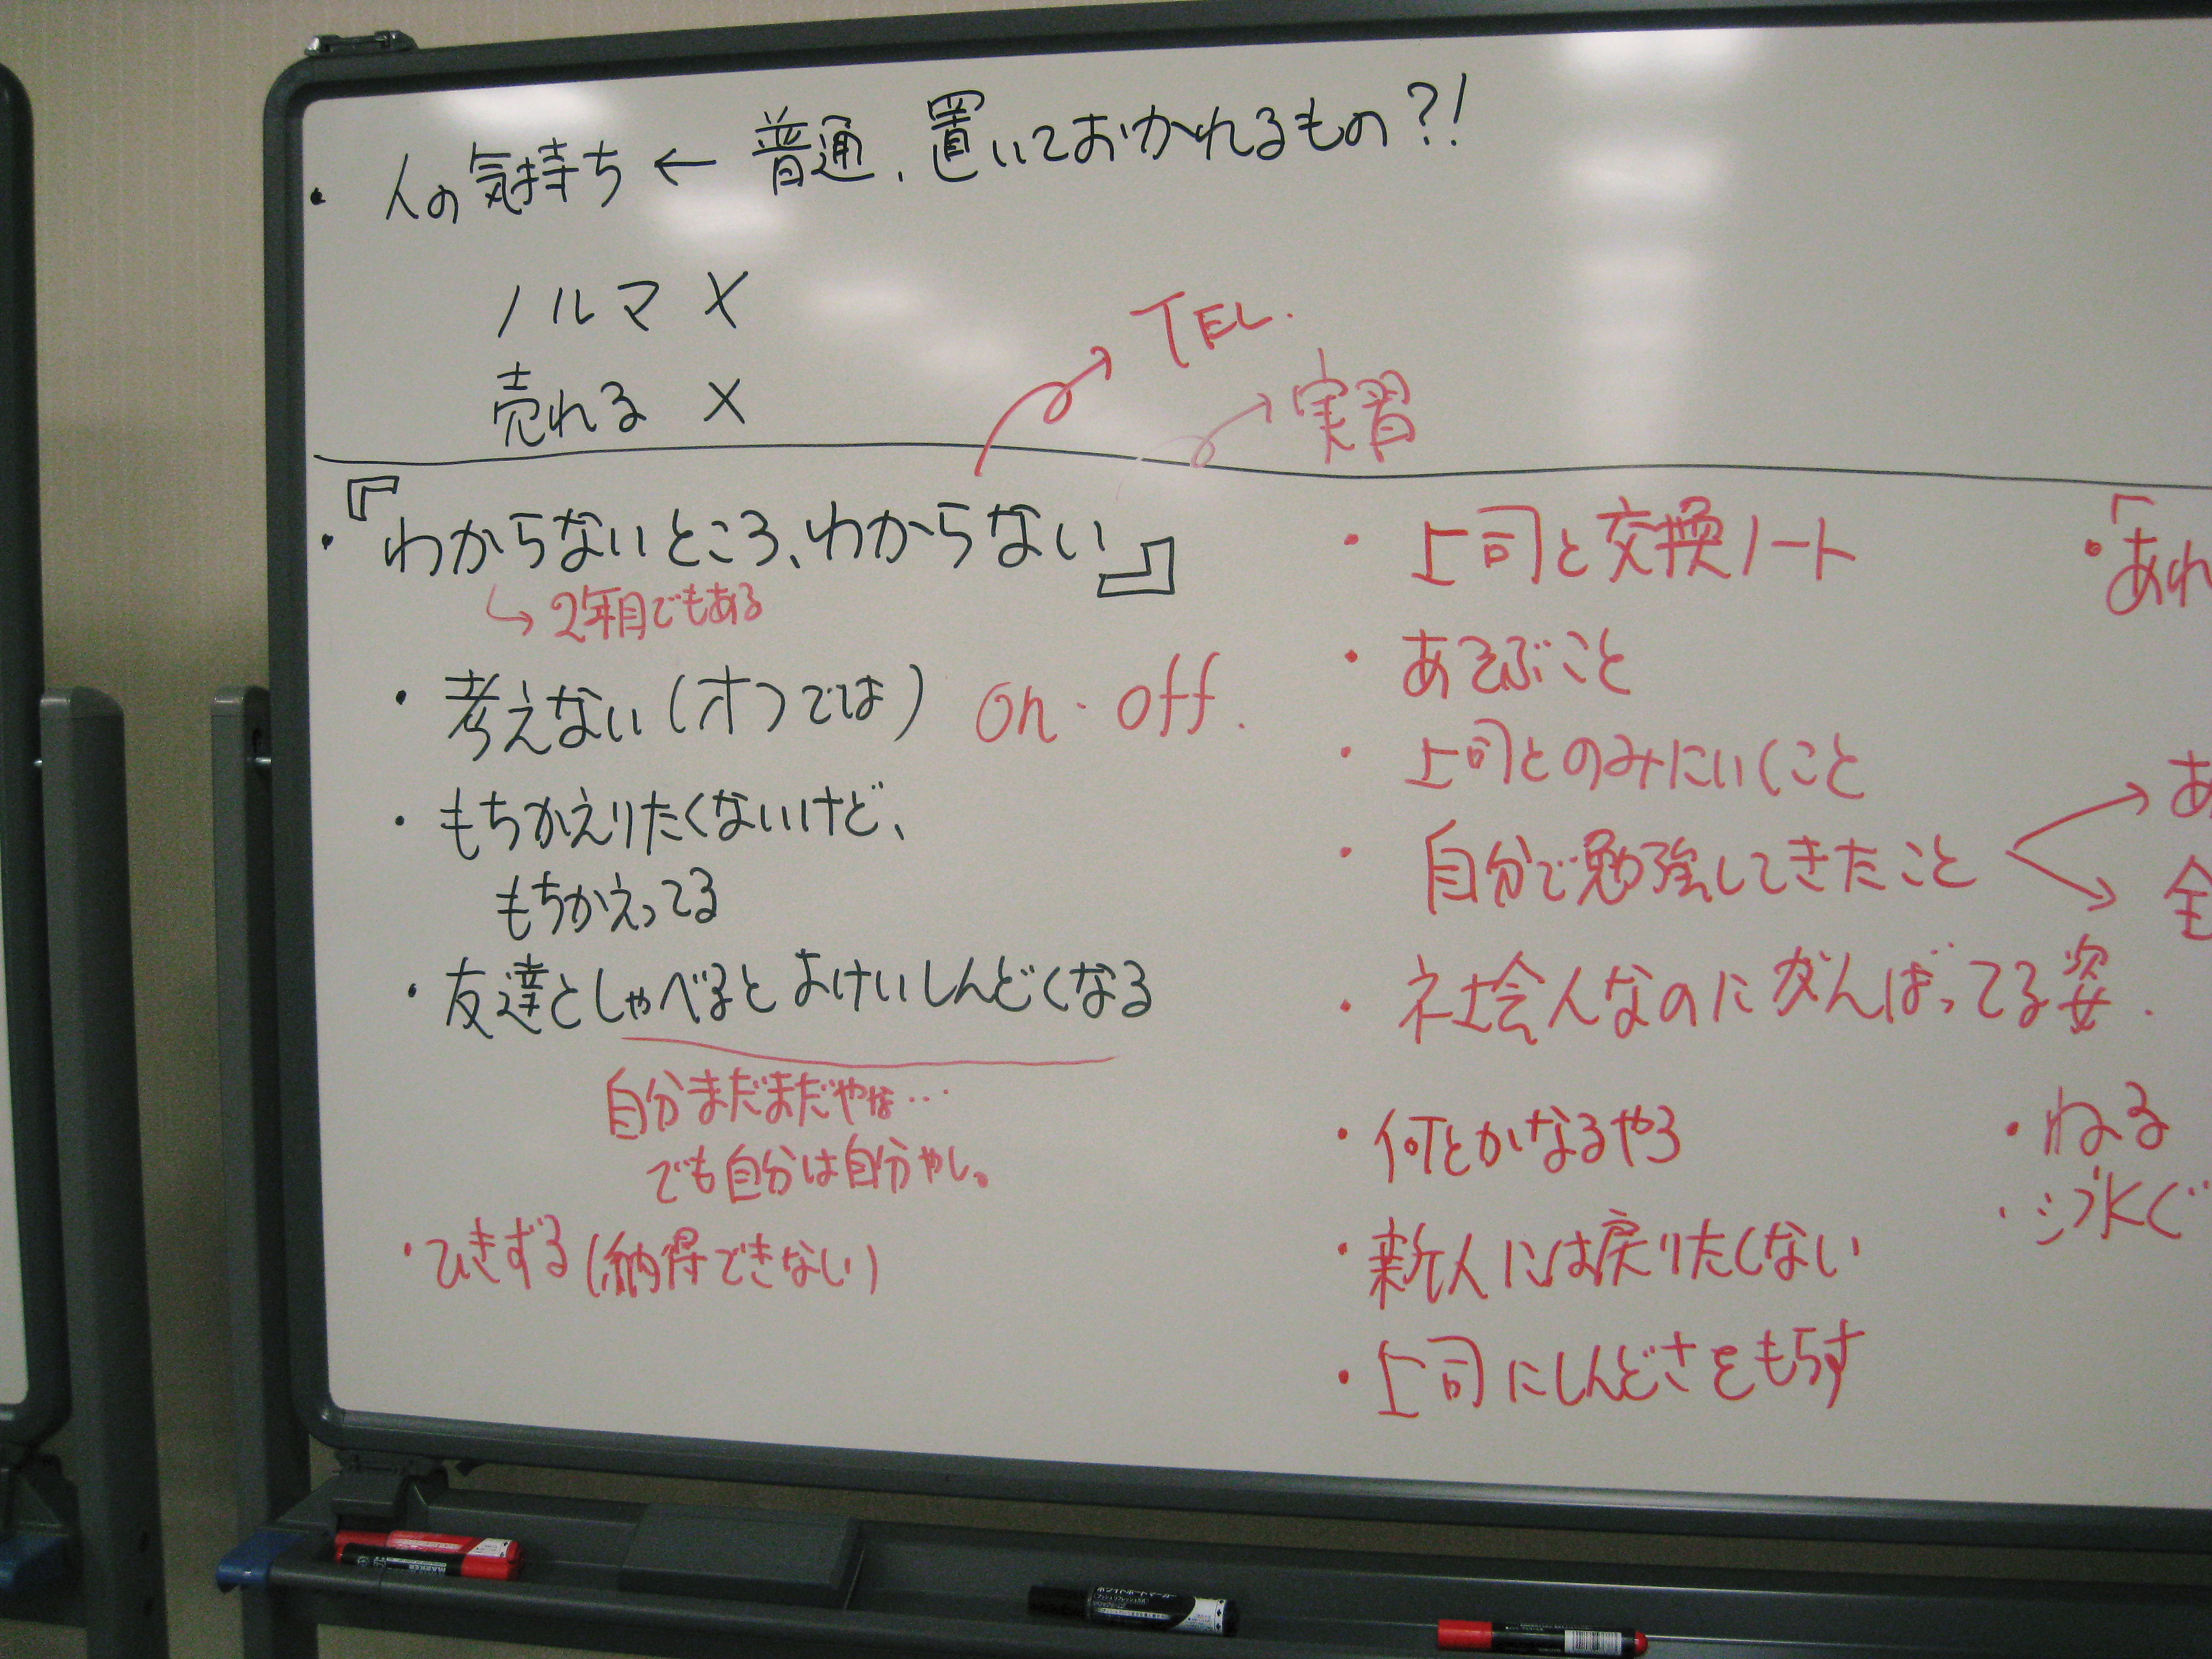 ・人の気持ち ← 普通、置いておかれるもの?!
ノルマ ×
売れる ×
TEL.
実習
・『わからないところ、わからない』
↳ 2年目でもある
・考えない(オフでは) on・off.
・もちかえりたくないけど、
もちかえってる
・友達としゃべるとよけいしんどくなる
自分まだまだやな…
でも自分は自分やし。
・ひきずる(納得できない)
・上司と交換ノート
・あそぶこと
・上司とのみにいくこと
・自分で勉強してきたこと
・社会人なのにがんばってる姿.
・何とかなるやろ
・新人には戻りたくない
・上司にしんどさをもらす
・「あれ
あ
全
・ねる